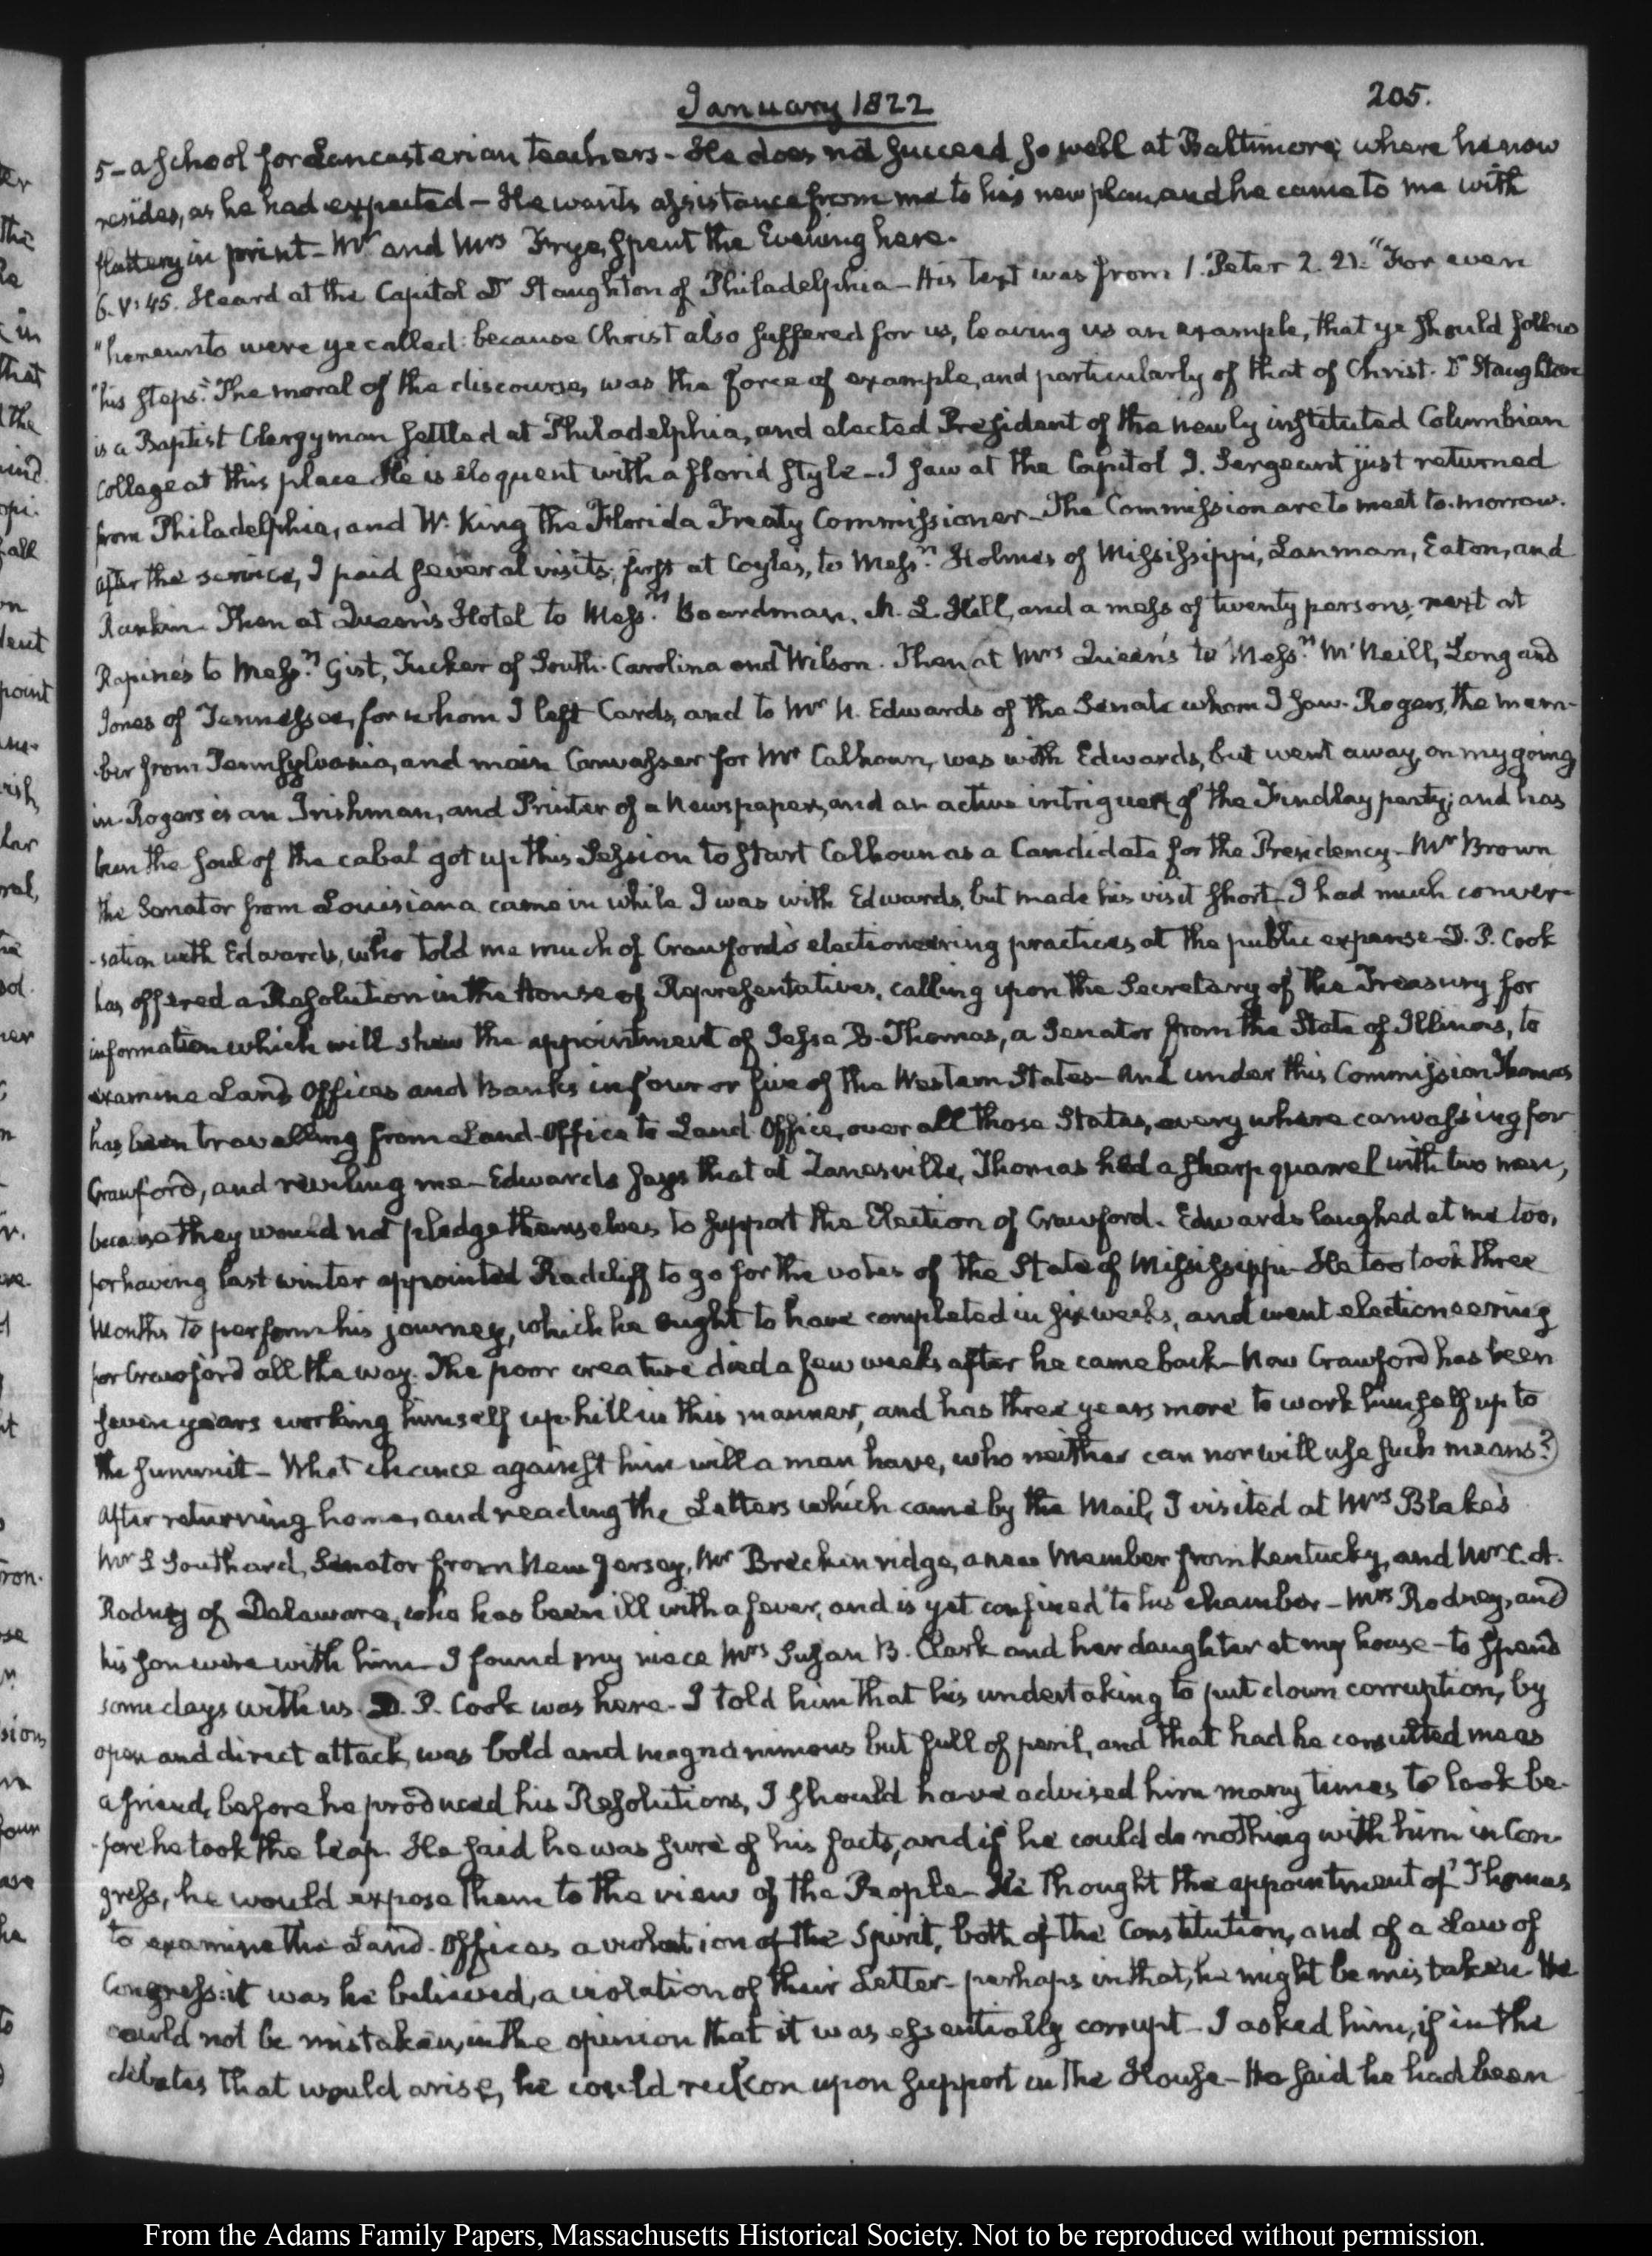 January 1822
205.
5 - a School for Lancasterian teachers - He does not succeed so well at Baltimore, where he now
resides, as he had expected - He wants assistance from me to his new plan, and he came to me with
flattery in print - Mr. and Mrs Frye, spent the Evening here.
6. V:45. Heard at the Capitol Dr Staughton of Philadelphia - His text was from 1. Peter 2. 21. "For even
"hereunto were ye called: because Christ also suffered for us, leaving us an example, that ye should follow
"his steps." The moral of the discourse, was the force of example, and particularly of that of Christ. Dr Staughton
is a Baptist Clergyman settled at Philadelphia, and elected President of the newly instituted Columbian
College at this place He is eloquent with a florid style - I saw at the Capitol J. Sergeant just returned
from Philadelphia, and W. King the Florida Treaty Commissioner - The Commission are to meet to-morrow.
After the service, I paid several visits; first at Coyle's, to Messrs. Holmes of Mississippi, Lanman, Eaton, and
Rankin. Then at Queen's Hotel to Messrs. Boardman, M. L. Hill, and a mess of twenty persons; next at
Rapine's to Messrs. Gist, Tucker of South-Carolina and Wilson. Then at Mrs Queen's to Messrs. McNeill, Long and
Jones of Tennessee, for whom I left Cards, and to Mr N. Edwards of the Senate whom I saw. Rogers, the mem-
-ber from Pennsylvania, and main Canvasser for Mr Calhoun, was with Edwards, but went away, on my going
in. Rogers is an Irishman, and Printer of a Newspaper, and an active intriguer of the Findlay party; and has
been the soul of the cabal got up this Session to start Calhoun as a Candidate for the Presidency - Mr Brown
the Senator from Louisiana came in while I was with Edwards, but made his visit short - I had much conver-
-sation with Edwards, who told me much of Crawford's electioneering practices at the public expense - D. P. Cook
has offered a Resolution in the House of Representatives, calling upon the Secretary of the Treasury for
information which will shew the appointment of Jesse B. Thomas, a Senator from the State of Illinois, to
examine Land Offices and Banks in four or five of the Western States - And under this Commission Thomas
has been travelling from Land-Office to Land-Office, over all those States, every where canvassing for
Crawford, and reviling me - Edwards says that at Zanesville, Thomas had a sharp quarrel with two men,
because they would not pledge themselves to support the Election of Crawford. Edwards laughed at me too,
for having last winter appointed Radcliff to go for the votes of the State of Mississippi - He too took three
Months to perform his journey, which he ought to have completed in six weeks, and went electioneering
for Crawford all the way. The poor creature died a few weeks after he came back - Now Crawford has been
seven years working himself up-hill in this manner, and has three years more to work himself up to
the summit - What chance against him will a man have, who neither can nor will use such means?
After returning home, and reading the Letters which came by the Mail, I visited at Mrs Blake's
Mr S Southard, Senator from New Jersey, Mr Breckinridge, a new Member from Kentucky, and Mr C. A.
Rodney of Delaware, who has been ill with a fever, and is yet confined to his chamber - Mrs Rodney, and
his son were with him - I found my niece Mrs Susan B. Clark and her daughter at my house - to spend
some days with us. D. P. Cook was here. I told him that his undertaking to put down corruption, by
open and direct attack, was bold and magnanimous but full of peril, and that had he consulted me as
a friend, before he produced his Resolutions, I should have advised him many times to look be-
-fore he took the leap. He said he was sure of his facts, and if he could do nothing with him in Con-
gress, he would expose them to the view of the People - He thought the appointment of Thomas
to examine the Land-Offices a violation of the Spirit, both of the Constitution, and of a Law of
Congress: it was he believed, a violation of their Letter - perhaps in that, he might be mistaken He
could not be mistaken, in the opinion that it was essentially corrupt - I asked him, if in the
debates that would arise, he could reckon upon support in the House - He said he had been
From the Adams Family Papers, Massachusetts Historical Society. Not to be reproduced without permission.